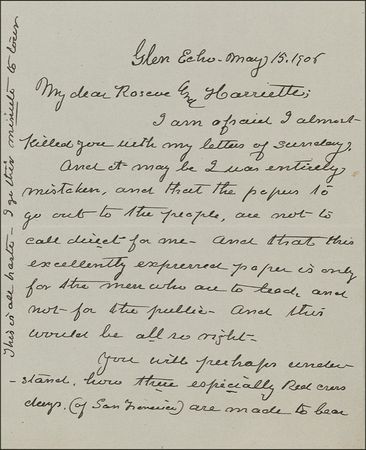 Glen Echo - May 15. 1906
My dear Roscoe and Harriette;
I am afraid I almost
killed you with my letters of Sunday,
And it may be I was entirely
mistaken, and that the papers to
go out to the people, are not to
call direct for me - And that this
excellently expressed paper is only
for the men who are to lead, and
not for the public - And this
would be all so right -
You will perhaps under-
-stand, how these especially Red cross
days, (of San Francisco) are made to bear
This is all haste - I go this minute to town